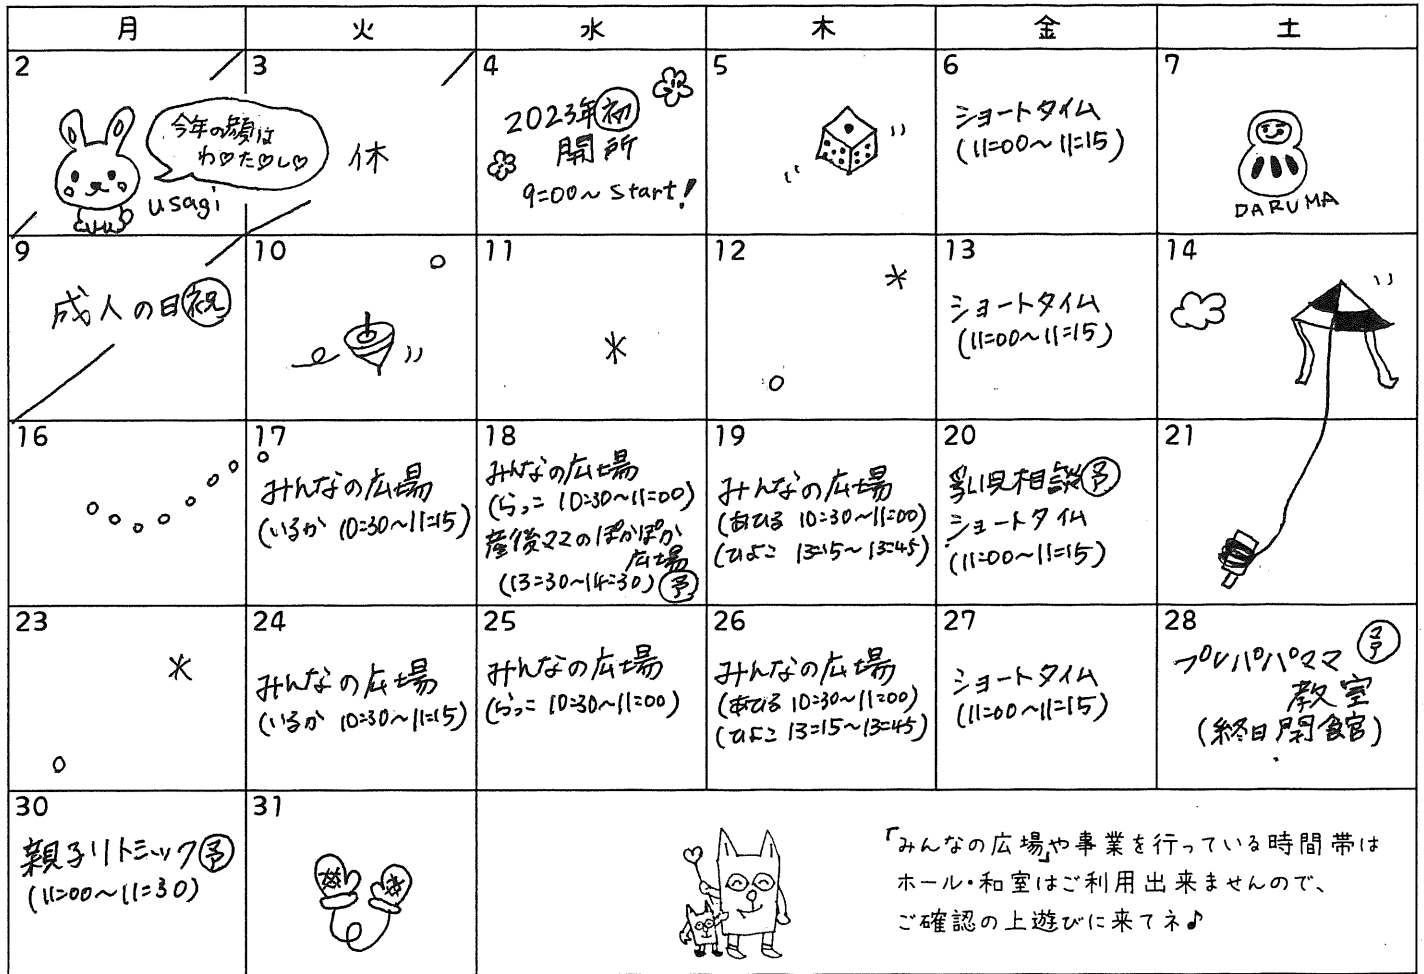 月 火 水 木 金 土
2
今年の顔は
わ♡た♡し♡
usagi
3
休
4
2023年初
開所
9:00~start!
5
6
ショートタイム
(11:00~11:15)
7
DARUMA
9
成人の日祝
10
11
12
13
ショートタイム
(11:00~11:15)
14
16
17
みんなの広場
(いるか 10:30~11:15)
18
みんなの広場
(らっこ 10:30~11:00)
産後ママのぽかぽか
広場
(13:30~14:30)予
19
みんなの広場
(あひる 10:30~11:00)
(ひよこ 13:15~13:45)
20
乳児相談予
ショートタイム
(11:00~11:15)
21
23
24
みんなの広場
(いるか 10:30~11:15)
25
みんなの広場
(らっこ 10:30~11:00)
26
みんなの広場
(あひる 10:30~11:00)
(ひよこ 13:15~13:45)
27
ショートタイム
(11:00~11:15)
28
予
プレパパママ
教室
(終日閉館)
30
親子リトミック予
(11:00~11:30)
31
「みんなの広場」や事業を行っている時間帯は
ホール・和室はご利用出来ませんので、
ご確認の上遊びに来てネ♪